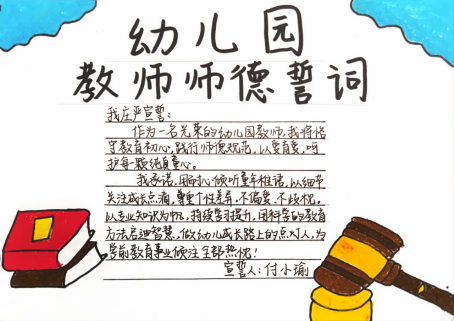 幼儿园
教师师德誓词
我庄严宣誓：
作为一名光荣的幼儿园教师，我将恪
守教育初心，践行师德规范，以爱育爱，呵
护每一颗纯真童心。
我承诺，用耐心倾听童年稚语，以细节
关注成长点滴，尊重个性差异，不偏爱、不歧视。
以专业知识为帆，持续学习提升，用科学的教育
方法启迪智慧，做幼儿成长路上的点灯人，为
学前教育事业倾注全部热忱！
宣誓人：付小瑜